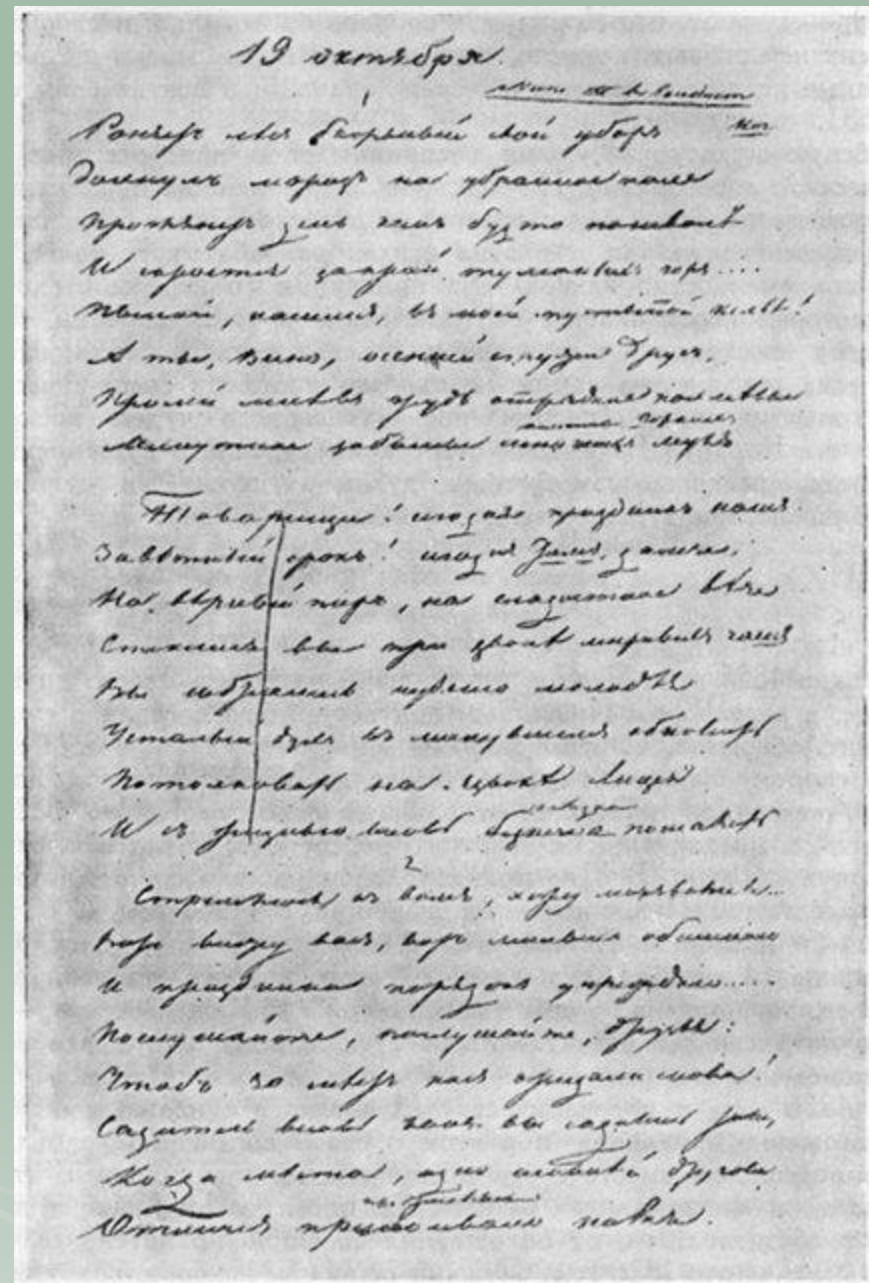 19 октября
Nunc est bibendum
Hor.
1
Роняетъ лѣсъ багряный свой уборъ
Дохнулъ морозъ на убранное поле
Проглянетъ день какъ будто поневолѣ
И скроется за край туманныхъ горъ....
Пылай, каминъ, въ моей пустынной кельѣ!
А ты, вино, осенней стужи другъ,
Пролей мнѣ въ грудь отрадное похмелье
Минутное забвенье горькихъ мукъ
Товарищи! сегодня праздникъ нашъ
Завѣтный срокъ! сегодня тамъ, далече,
На пиръ, на сладостное вѣче
Стеклися вы при звонѣ мирныхъ чашъ
Вы собрались молодѣя
Усталый духъ въ минувшемъ обновить
Потолковать на языкѣ Лицея
И съ жизнью вновь свободно пошалить
2
Стремлюся къ вамъ,
Вотъ вижу васъ, вотъ милыхъ обнимаю
И праздника порядокъ учреждаю....
Послушайте, послушайте, друзья:
Чтобъ 30 мѣстъ насъ ожидали снова!
Садитесь вновь какъ вы садились тамъ,
Когда мѣста,
Отличія